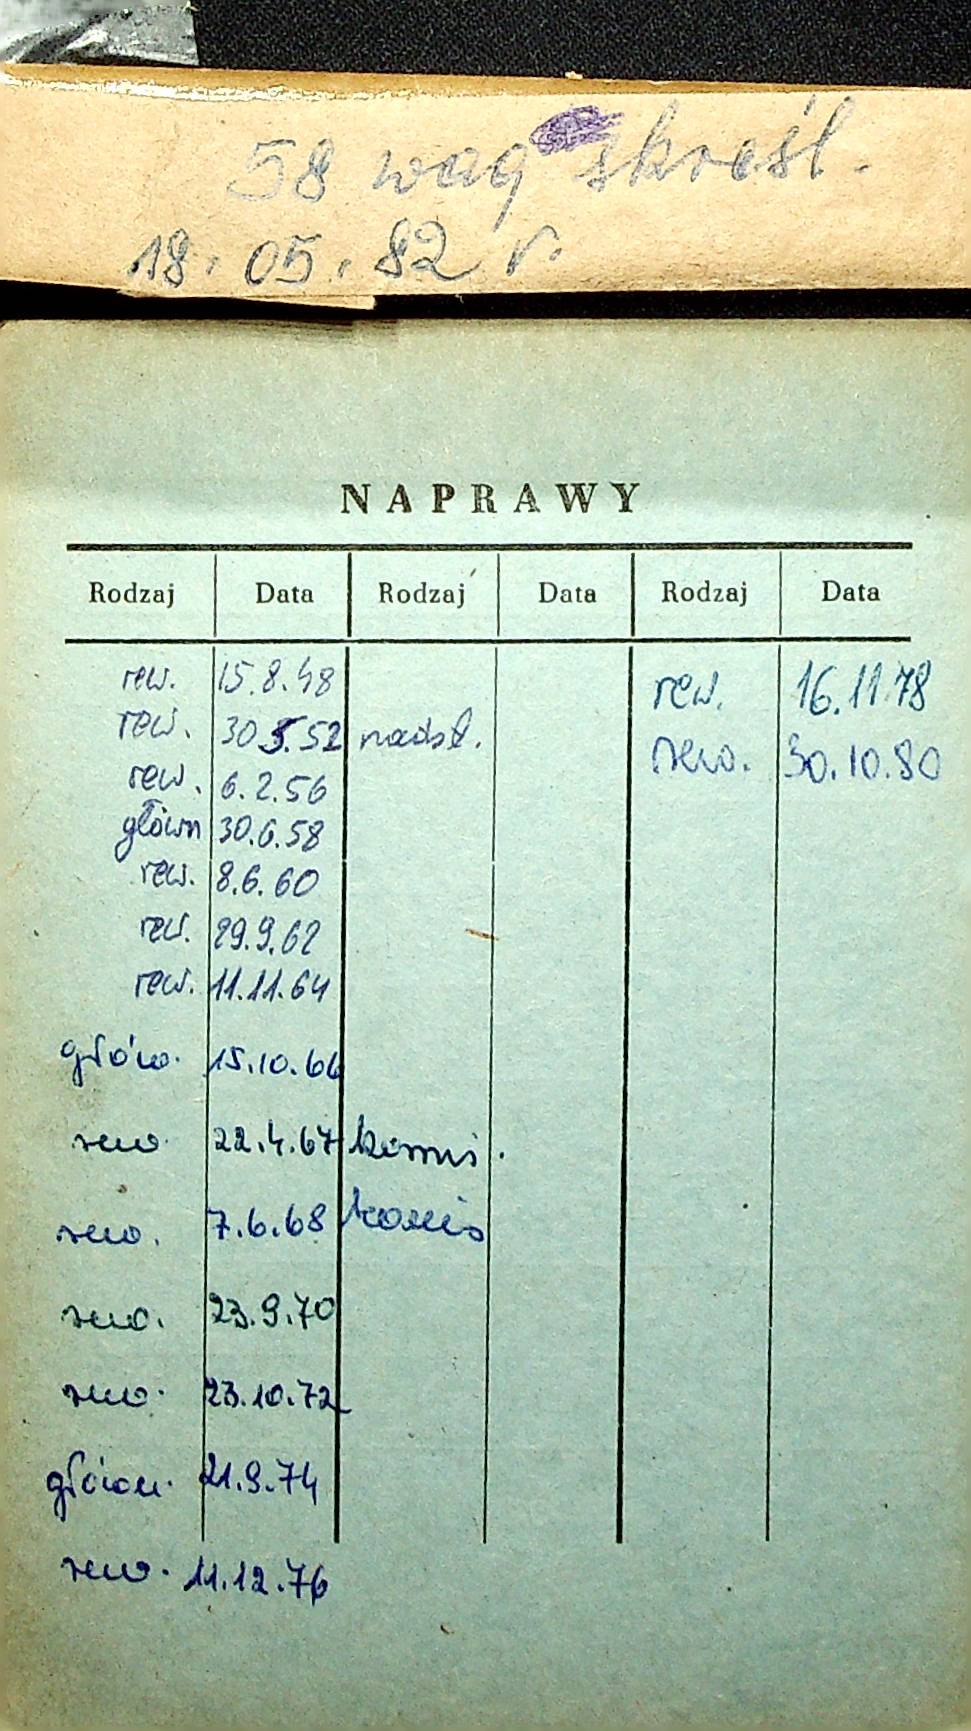 58 wag skreśl.
18.05.82 r.
NAPRAWY
Rodzaj Data Rodzaj Data Rodzaj Data
rew. 15.8.48 rew. 16.11.78
rew. 30.5.52 nadsł. rew. 30.10.80
rew. 6.2.56
główn 30.6.58
rew. 8.6.60
rew. 29.9.62
rew. 11.11.64
głów. 15.10.66
rew. 22.4.67 komis.
rew. 7.6.68 komis
rew. 23.9.70
rew. 23.10.72
główn. 21.9.74
rew. 11.12.76